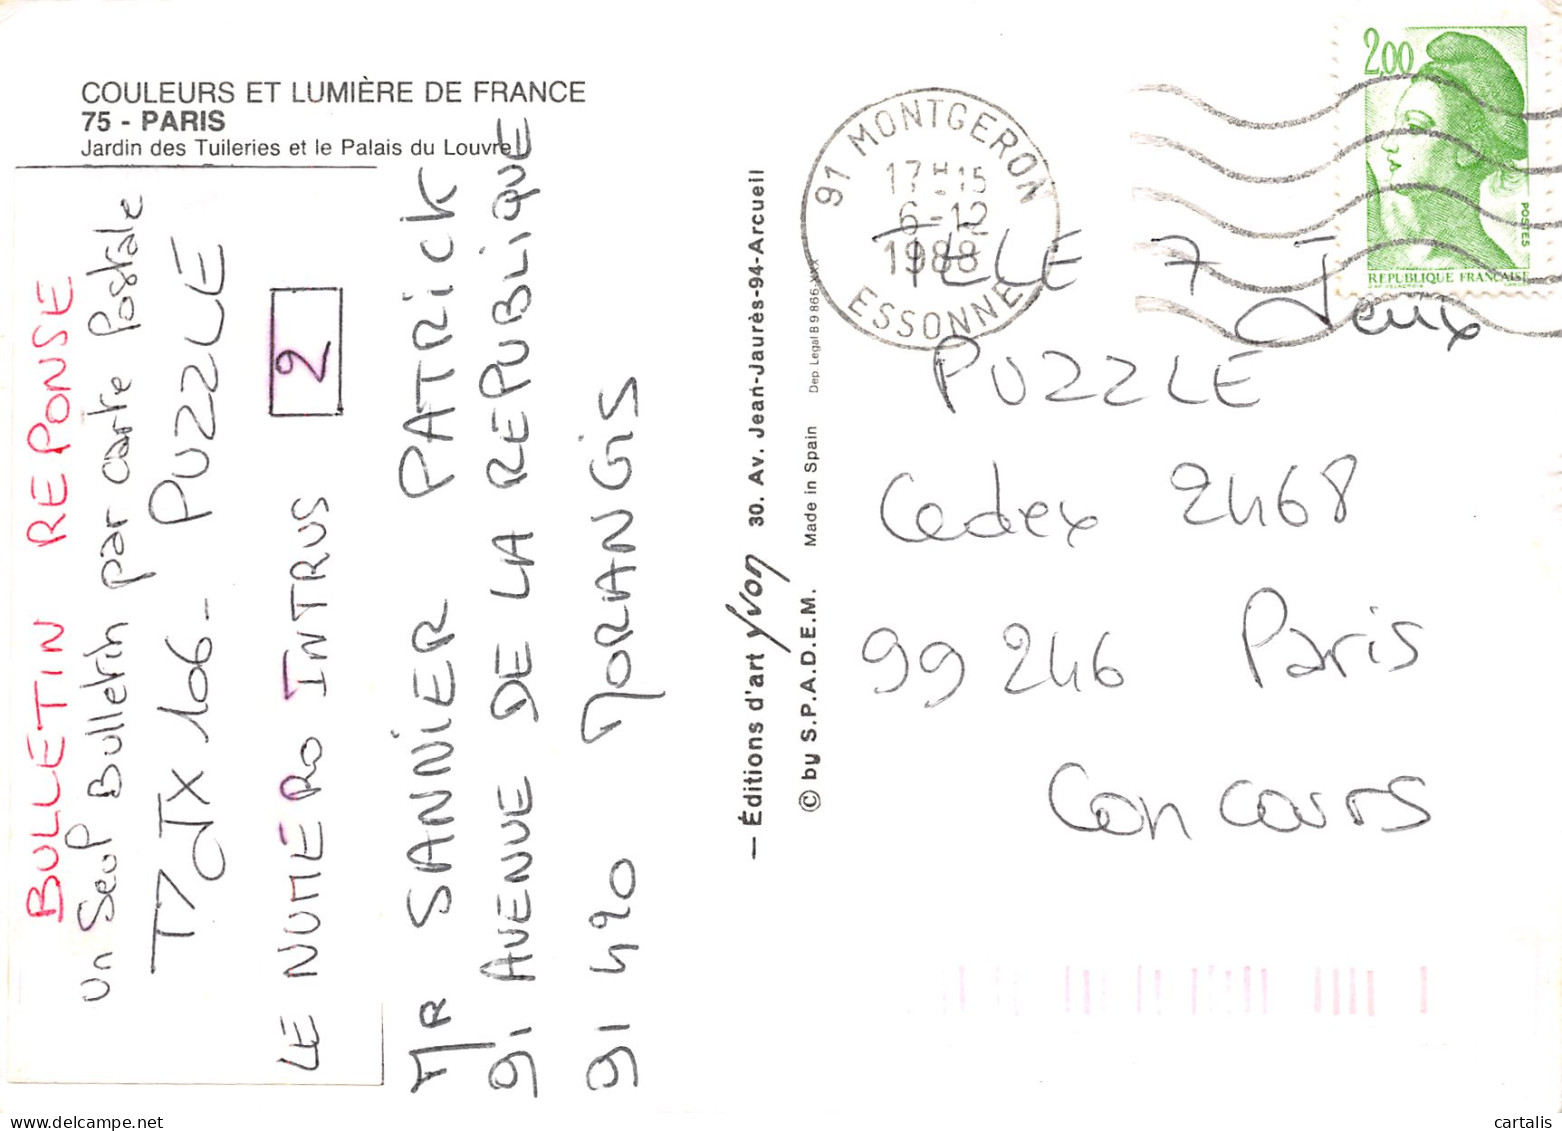 COULEURS ET LUMIÈRE DE FRANCE
75 - PARIS
Jardin des Tuileries et le Palais du Louvre
BULLETIN REPONSE
un Seul Bulletin par carte Postale
T7JX 106 - PUZZLE
LE NUMÉRO INTRUS 2
MR SANNIER PATRICK
91 AVENUE DE LA REPUBLIQUE
91420 MORANGIS
— Éditions d'art yvon 30. Av. Jean-Jaurès-94-Arcueil
© by S.P.A.D.E.M. Made in Spain Dep. Legal B 9866-XXX
91 MONTGERON
17H15
6-12
1988
ESSONNE
2,00
POSTES
REPUBLIQUE FRANCAISE
TELE 7 Jeux
PUZZLE
Cedex 2468
99246 Paris
Concours
delcampe.net
cartalis